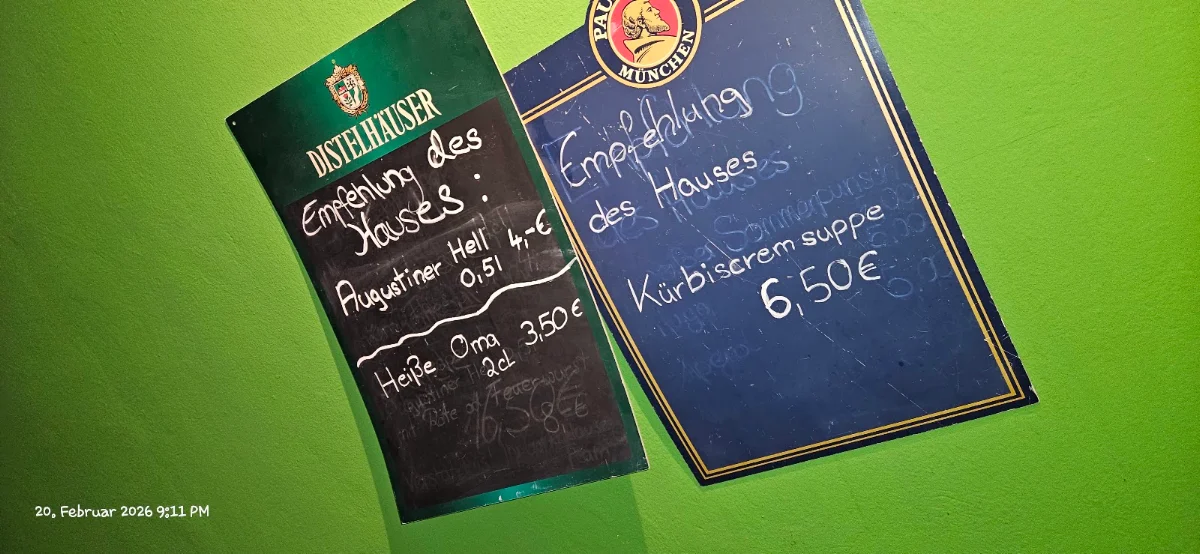 DISTELHÄUSER
Empfehlung des
Hauses:
Augustiner Hell 4,-€
0,5l
Heiße Oma 3,50€
2cl
PAUL
MÜNCHEN
Empfehlung
des Hauses
Kürbiscremsuppe
6,50€
20. Februar 2026 9:11 PM